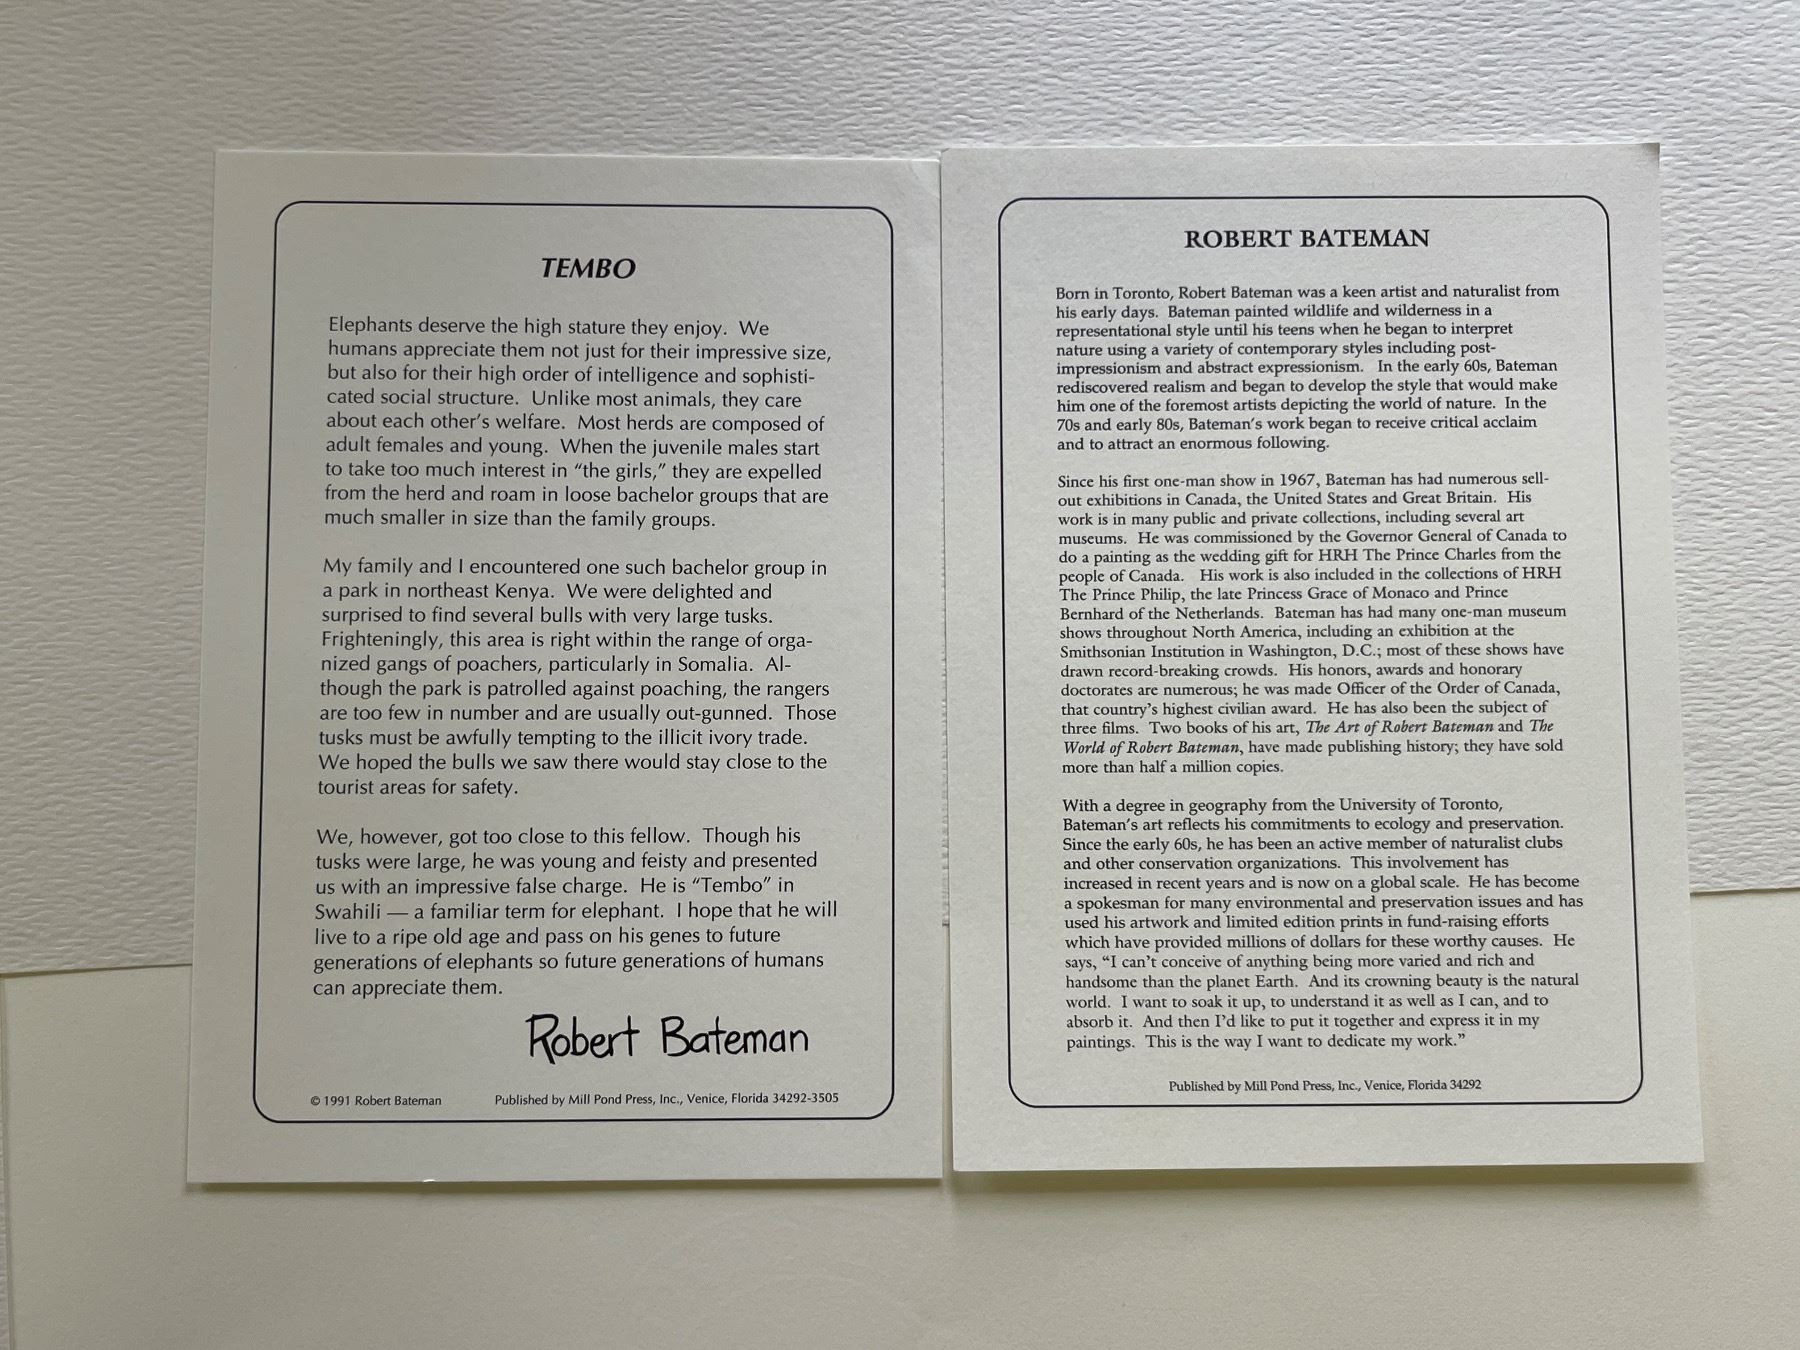 TEMBO
Elephants deserve the high stature they enjoy. We
humans appreciate them not just for their impressive size,
but also for their high order of intelligence and sophisti-
cated social structure. Unlike most animals, they care
about each other's welfare. Most herds are composed of
adult females and young. When the juvenile males start
to take too much interest in "the girls," they are expelled
from the herd and roam in loose bachelor groups that are
much smaller in size than the family groups.
My family and I encountered one such bachelor group in
a park in northeast Kenya. We were delighted and
surprised to find several bulls with very large tusks.
Frighteningly, this area is right within the range of orga-
nized gangs of poachers, particularly in Somalia. Al-
though the park is patrolled against poaching, the rangers
are too few in number and are usually out-gunned. Those
tusks must be awfully tempting to the illicit ivory trade.
We hoped the bulls we saw there would stay close to the
tourist areas for safety.
We, however, got too close to this fellow. Though his
tusks were large, he was young and feisty and presented
us with an impressive false charge. He is "Tembo" in
Swahili — a familiar term for elephant. I hope that he will
live to a ripe old age and pass on his genes to future
generations of elephants so future generations of humans
can appreciate them.
Robert Bateman
© 1991 Robert Bateman Published by Mill Pond Press, Inc., Venice, Florida 34292-3505
ROBERT BATEMAN
Born in Toronto, Robert Bateman was a keen artist and naturalist from
his early days. Bateman painted wildlife and wilderness in a
representational style until his teens when he began to interpret
nature using a variety of contemporary styles including post-
impressionism and abstract expressionism. In the early 60s, Bateman
rediscovered realism and began to develop the style that would make
him one of the foremost artists depicting the world of nature. In the
70s and early 80s, Bateman's work began to receive critical acclaim
and to attract an enormous following.
Since his first one-man show in 1967, Bateman has had numerous sell-
out exhibitions in Canada, the United States and Great Britain. His
work is in many public and private collections, including several art
museums. He was commissioned by the Governor General of Canada to
do a painting as the wedding gift for HRH The Prince Charles from the
people of Canada. His work is also included in the collections of HRH
The Prince Philip, the late Princess Grace of Monaco and Prince
Bernhard of the Netherlands. Bateman has had many one-man museum
shows throughout North America, including an exhibition at the
Smithsonian Institution in Washington, D.C.; most of these shows have
drawn record-breaking crowds. His honors, awards and honorary
doctorates are numerous; he was made Officer of the Order of Canada,
that country's highest civilian award. He has also been the subject of
three films. Two books of his art, The Art of Robert Bateman and The
World of Robert Bateman, have made publishing history; they have sold
more than half a million copies.
With a degree in geography from the University of Toronto,
Bateman's art reflects his commitments to ecology and preservation.
Since the early 60s, he has been an active member of naturalist clubs
and other conservation organizations. This involvement has
increased in recent years and is now on a global scale. He has become
a spokesman for many environmental and preservation issues and has
used his artwork and limited edition prints in fund-raising efforts
which have provided millions of dollars for these worthy causes. He
says, "I can't conceive of anything being more varied and rich and
handsome than the planet Earth. And its crowning beauty is the natural
world. I want to soak it up, to understand it as well as I can, and to
absorb it. And then I'd like to put it together and express it in my
paintings. This is the way I want to dedicate my work."
Published by Mill Pond Press, Inc., Venice, Florida 34292